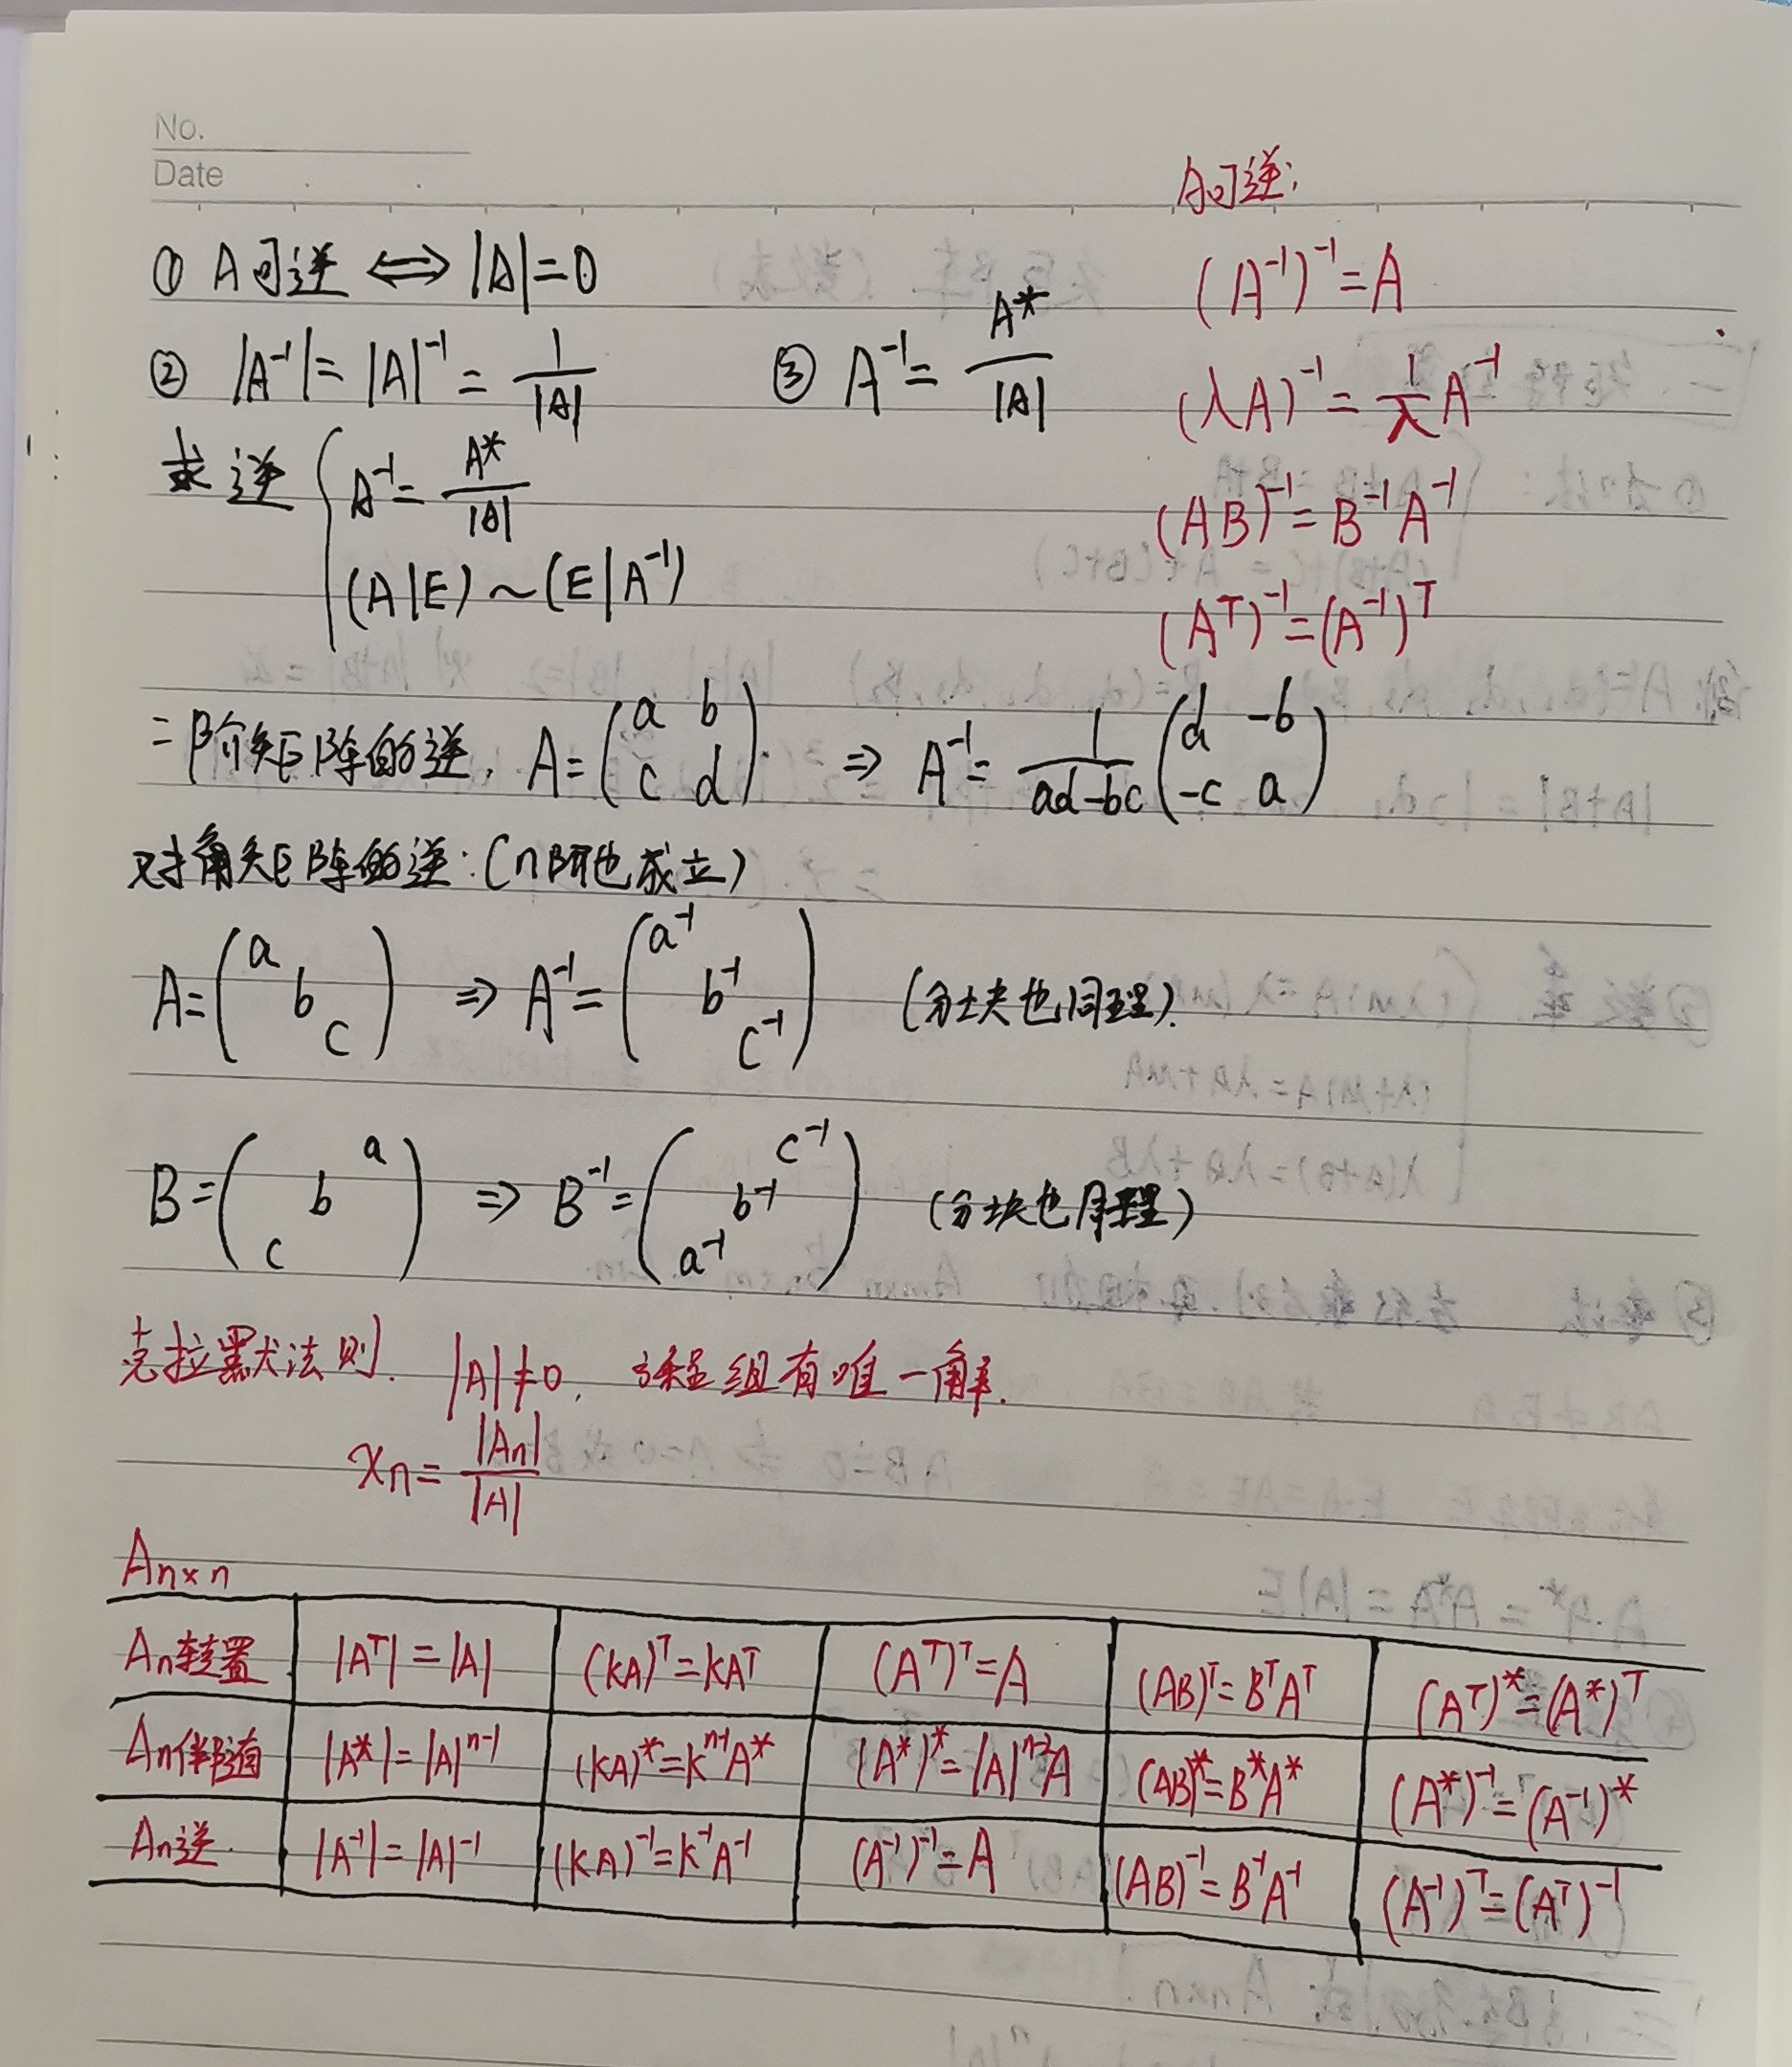 No.
Date
A可逆:
① A可逆 ⟺ |A|=0
(A⁻¹)⁻¹=A
② |A⁻¹|=|A|⁻¹=1/|A| ③ A⁻¹=A*/|A|
(λA)⁻¹=1/λ A⁻¹
求逆 { A⁻¹=A*/|A|
(AB)⁻¹=B⁻¹A⁻¹
(A|E)~(E|A⁻¹)
(Aᵀ)⁻¹=(A⁻¹)ᵀ
二阶矩阵的逆, A=(a b; c d). ⇒ A⁻¹=1/(ad-bc) (d -b; -c a)
对角矩阵的逆:(n阶也成立)
A=(a b c) ⇒ A⁻¹=(a⁻¹ b⁻¹ c⁻¹) (分块也同理).
B=(a b c) ⇒ B⁻¹=(c⁻¹ b⁻¹ a⁻¹) (分块也同理)
克拉默法则. |A|≠0, 方程组有唯一解.
xn=|An|/|A|
An×n
An转置 |Aᵀ|=|A| (kA)ᵀ=kAᵀ (Aᵀ)ᵀ=A (AB)ᵀ=BᵀAᵀ (Aᵀ)*=(A*)ᵀ
An伴随 |A*|=|A|ⁿ⁻¹ (kA)*=kⁿ⁻¹A* (A*)*=|A|ⁿ⁻²A (AB)*=B*A* (A*)⁻¹=(A⁻¹)*
An逆. |A⁻¹|=|A|⁻¹ (kA)⁻¹=k⁻¹A⁻¹ (A⁻¹)⁻¹=A (AB)⁻¹=B⁻¹A⁻¹ (A⁻¹)ᵀ=(Aᵀ)⁻¹